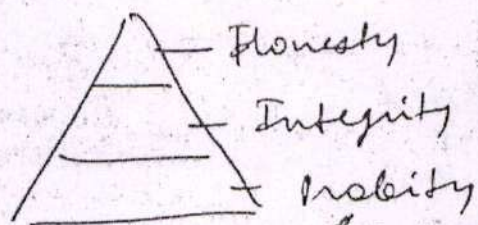 Honesty
Integrity
Probity